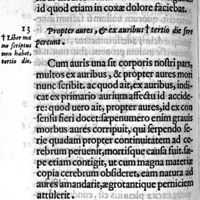 id quod etiam in coxæ dolore faciebat.
13
† Liber ma
nu scriptus
non habet,
tertio die.
Propter aures, & ex auribus † tertio die fere
pereunt.
Cum auris una sit corporis nostri pars,
multos ex auribus, & propter aures mori
nunc scribit. ac quod air, ex auribus, indicat
ex primario aurium affectu id accidere.
quod uero ait, propter aures, id ex con
sensu fieri docet: sæpenumero enim grauis
morbus aures corripuit, qui serpendo se-
rie quadam propter continuitatem ad ce-
rebrum peruenit, mortisque causa fuit. sæ-
pe etiam contigit, ut cum magna materiæ
copia cerebrum obsideret, eam natura ad
aures amandarit, ægrotantique perniciem
attulerit.